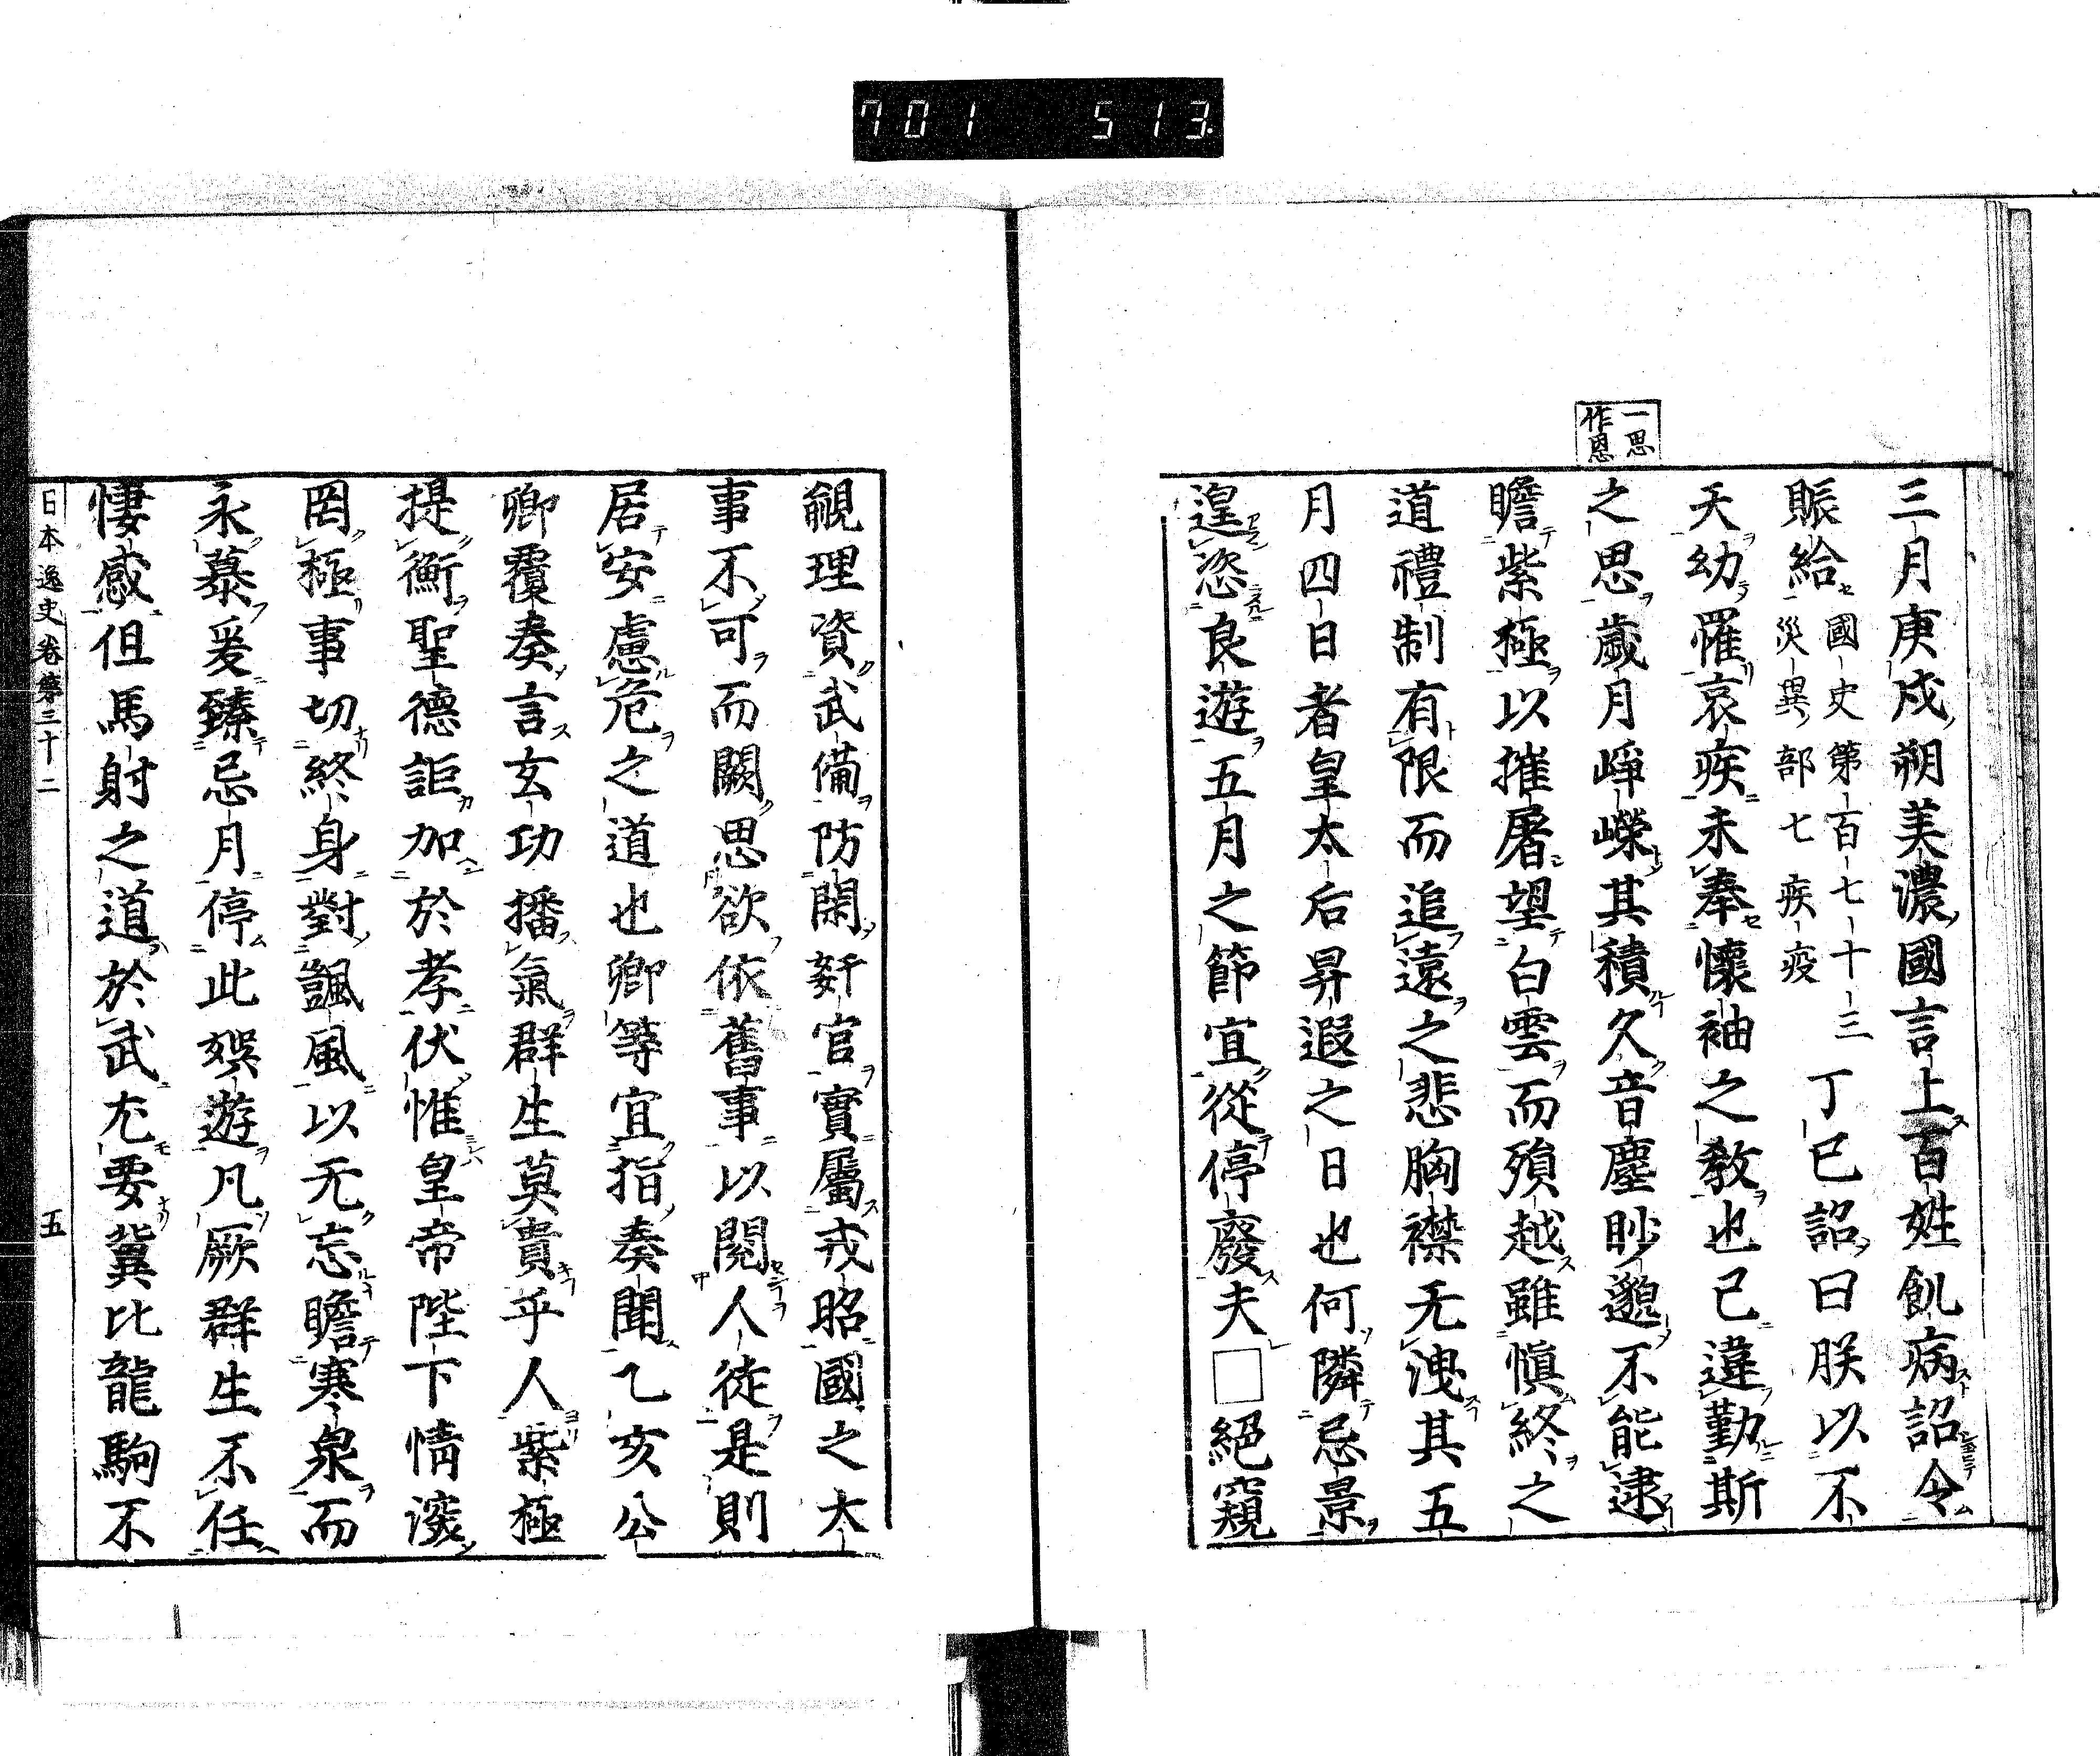 701 513
一思
作恩
三月庚戌朔美濃國言上百姓飢病詔令
賑給國史第百七十三災異部七疾疫丁巳詔曰朕以不
天幼罹哀疾未奉懷袖之敎也已違勤斯
之思歲月崢嶸其積久音塵眇邈不能逮
瞻紫極以摧屠望白雲而殞越雖愼終之
道禮制有限而追遠之悲胸襟无洩其五
月四日者皇太后昇遐之日也何隣忌景
遑恣良遊五月之節宜從停廢夫□絕窺
覦理資武備防閑姧宄實屬戎昭國之大
事不可而闕思欲依舊事以閱人徒是則
居安慮危之道也卿等宜指奏聞乙亥公
卿覆奏言玄功播氣群生莫貴乎人紫極
提衡聖德詎加於孝伏惟皇帝陛下情深
罔極事切終身對颽風以无忘瞻寒泉而
永慕爰臻忌月停此娯遊凡厥群生不任
悽感但馬射之道於武尤要冀比龍駒不
日本逸史卷第三十二 五